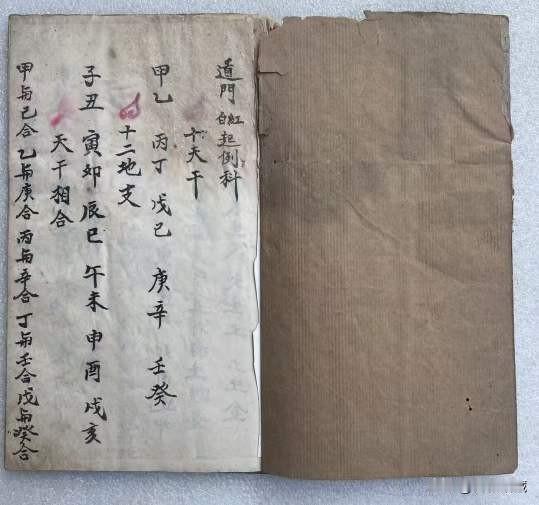 道門紅白起例科
十天干
甲乙 丙丁 戊己 庚辛 壬癸
十二地支
子丑 寅卯 辰巳 午未 申酉 戌亥
天干相合
甲与己合 乙与庚合 丙与辛合 丁与壬合 戊与癸合